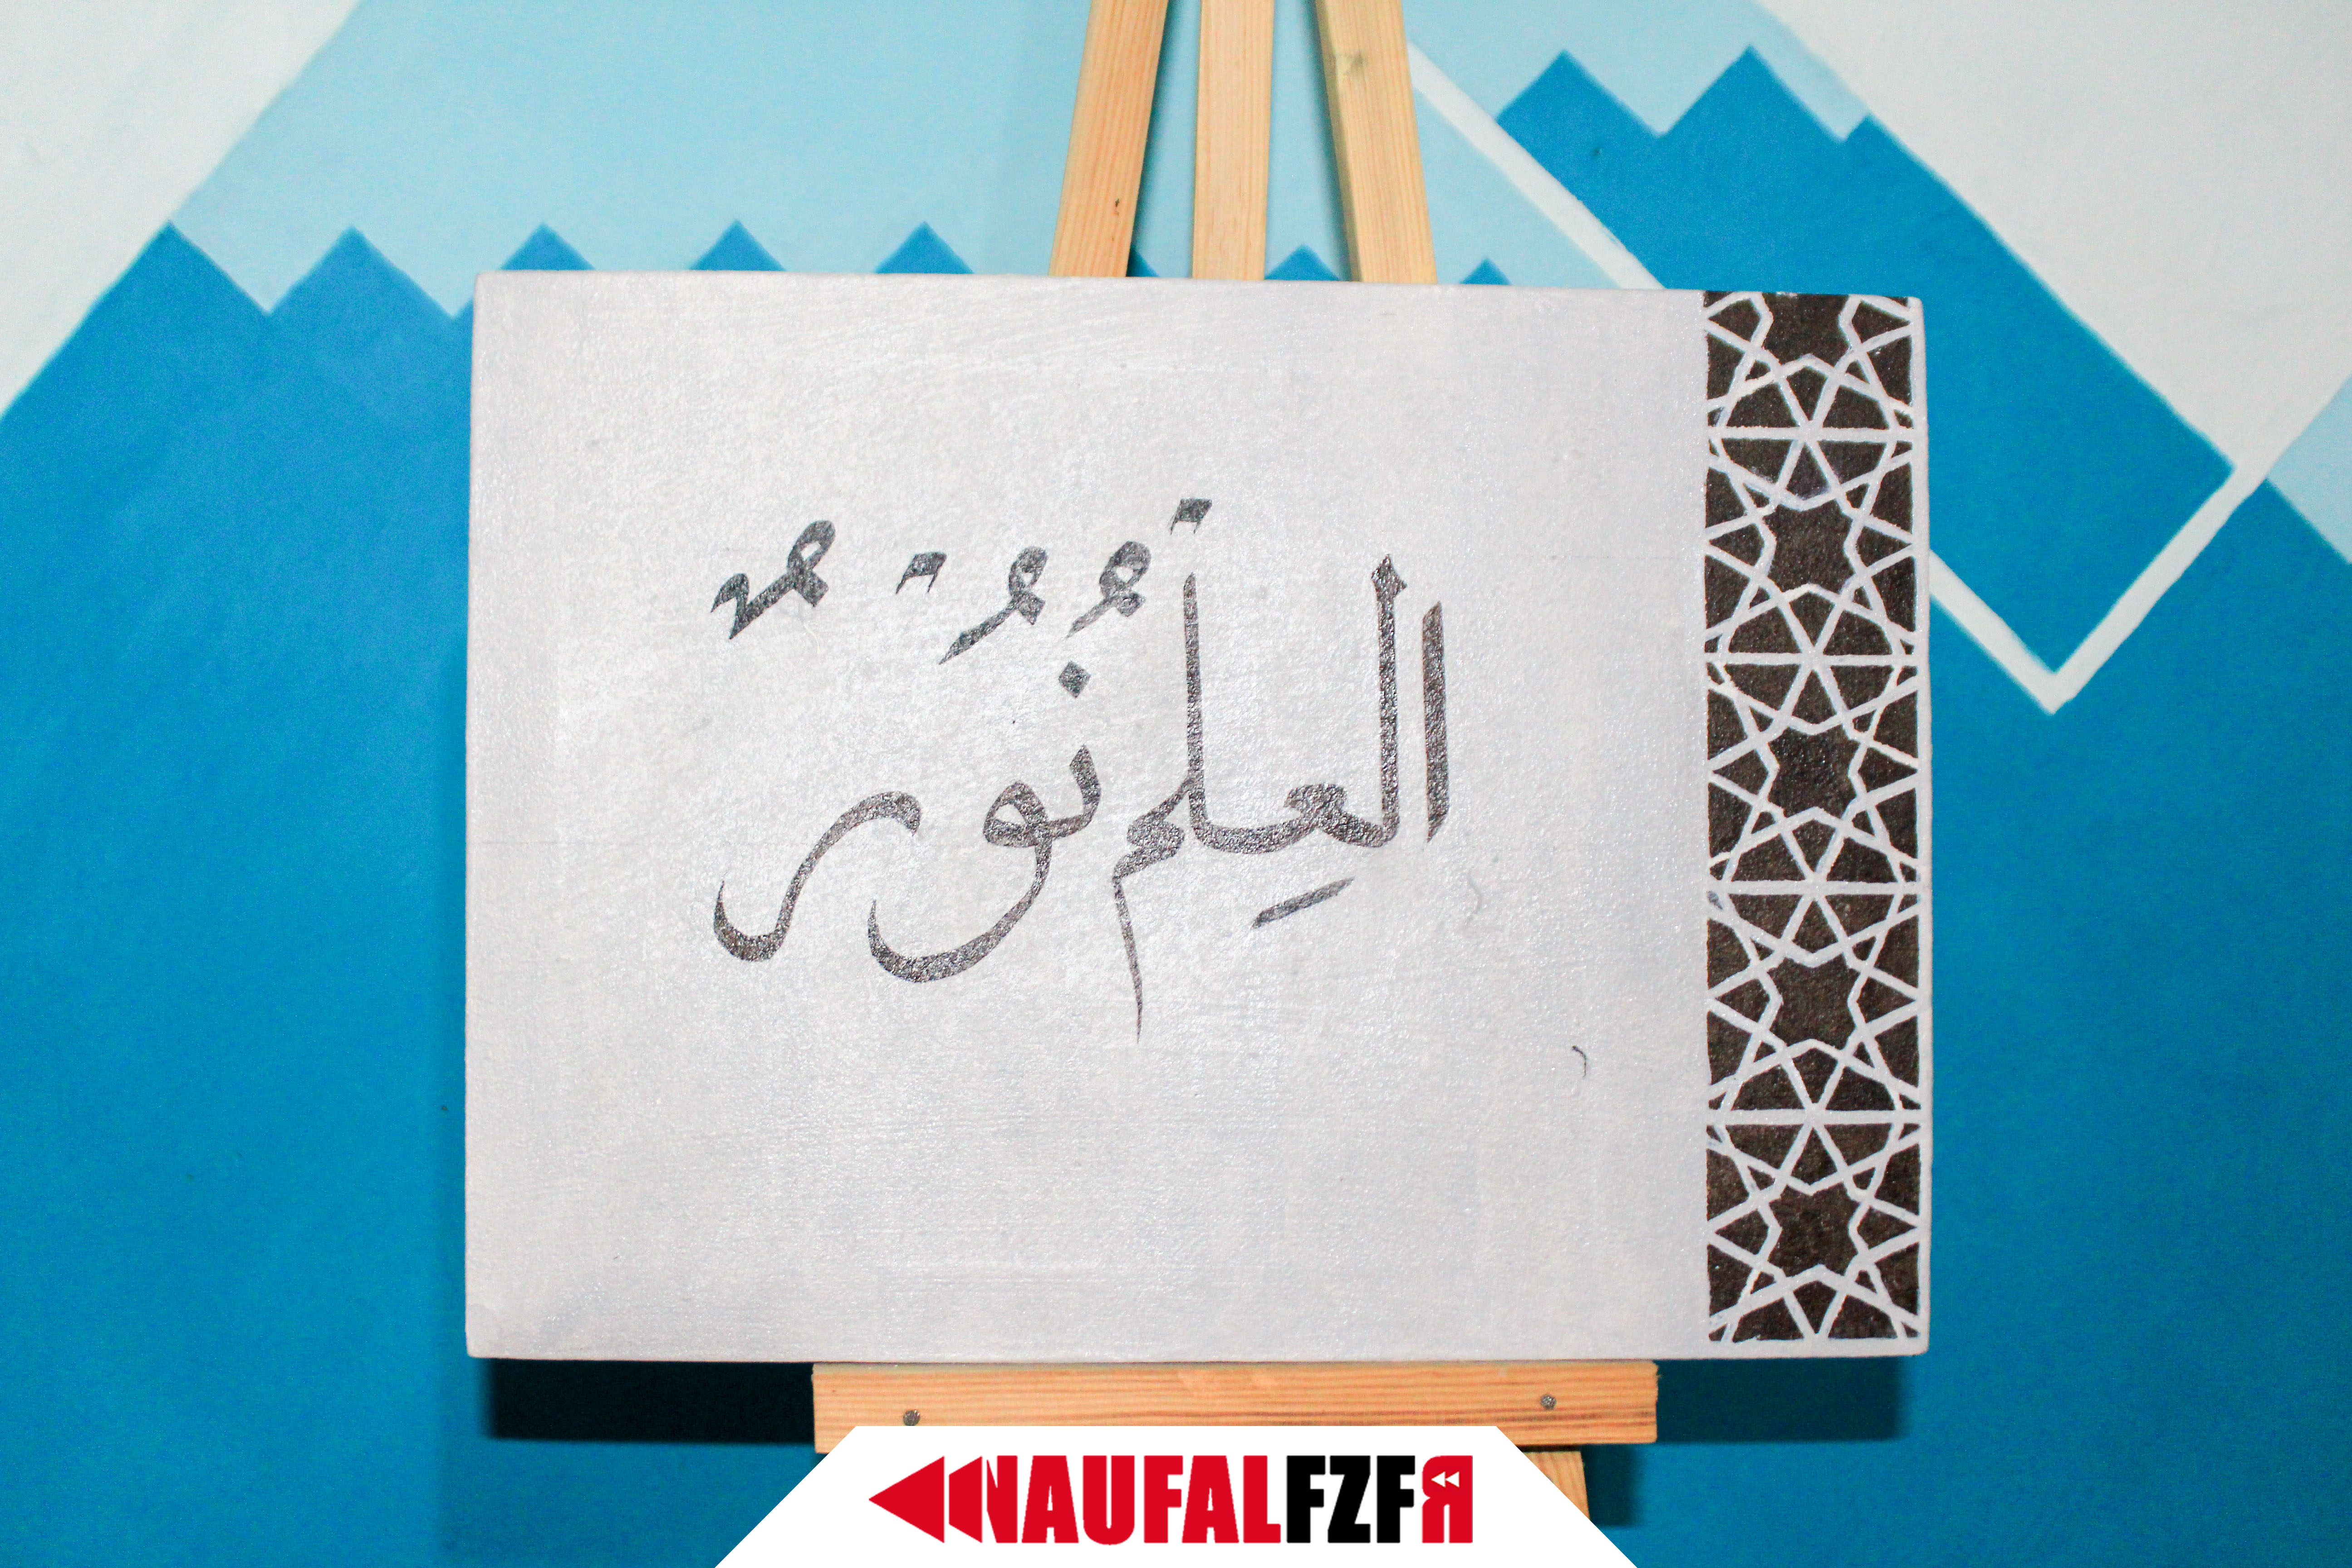 العِلْمُ نُوْرٌ
NAUFALFZFR